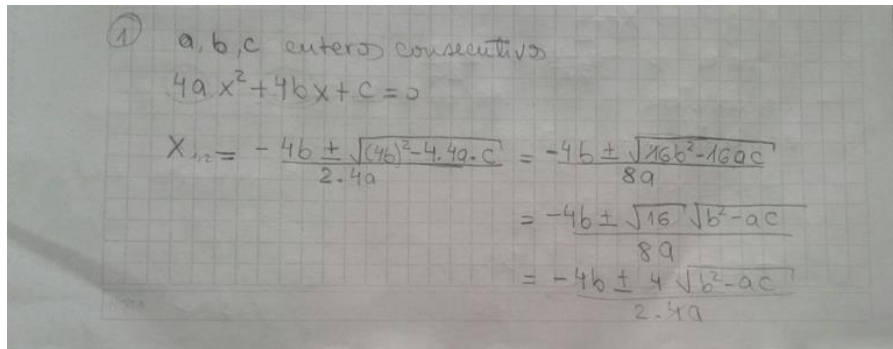 ① a, b, c enteros consecutivos
4a x² + 4b x + c = 0
X₁,₂ = - 4b ± √(4b)² - 4. 4a. c / 2. 4a = -4b ± √16b² - 16ac / 8a
= -4b ± √16 √b² - ac / 8a
= -4b ± 4 √b² - ac / 2. 4a